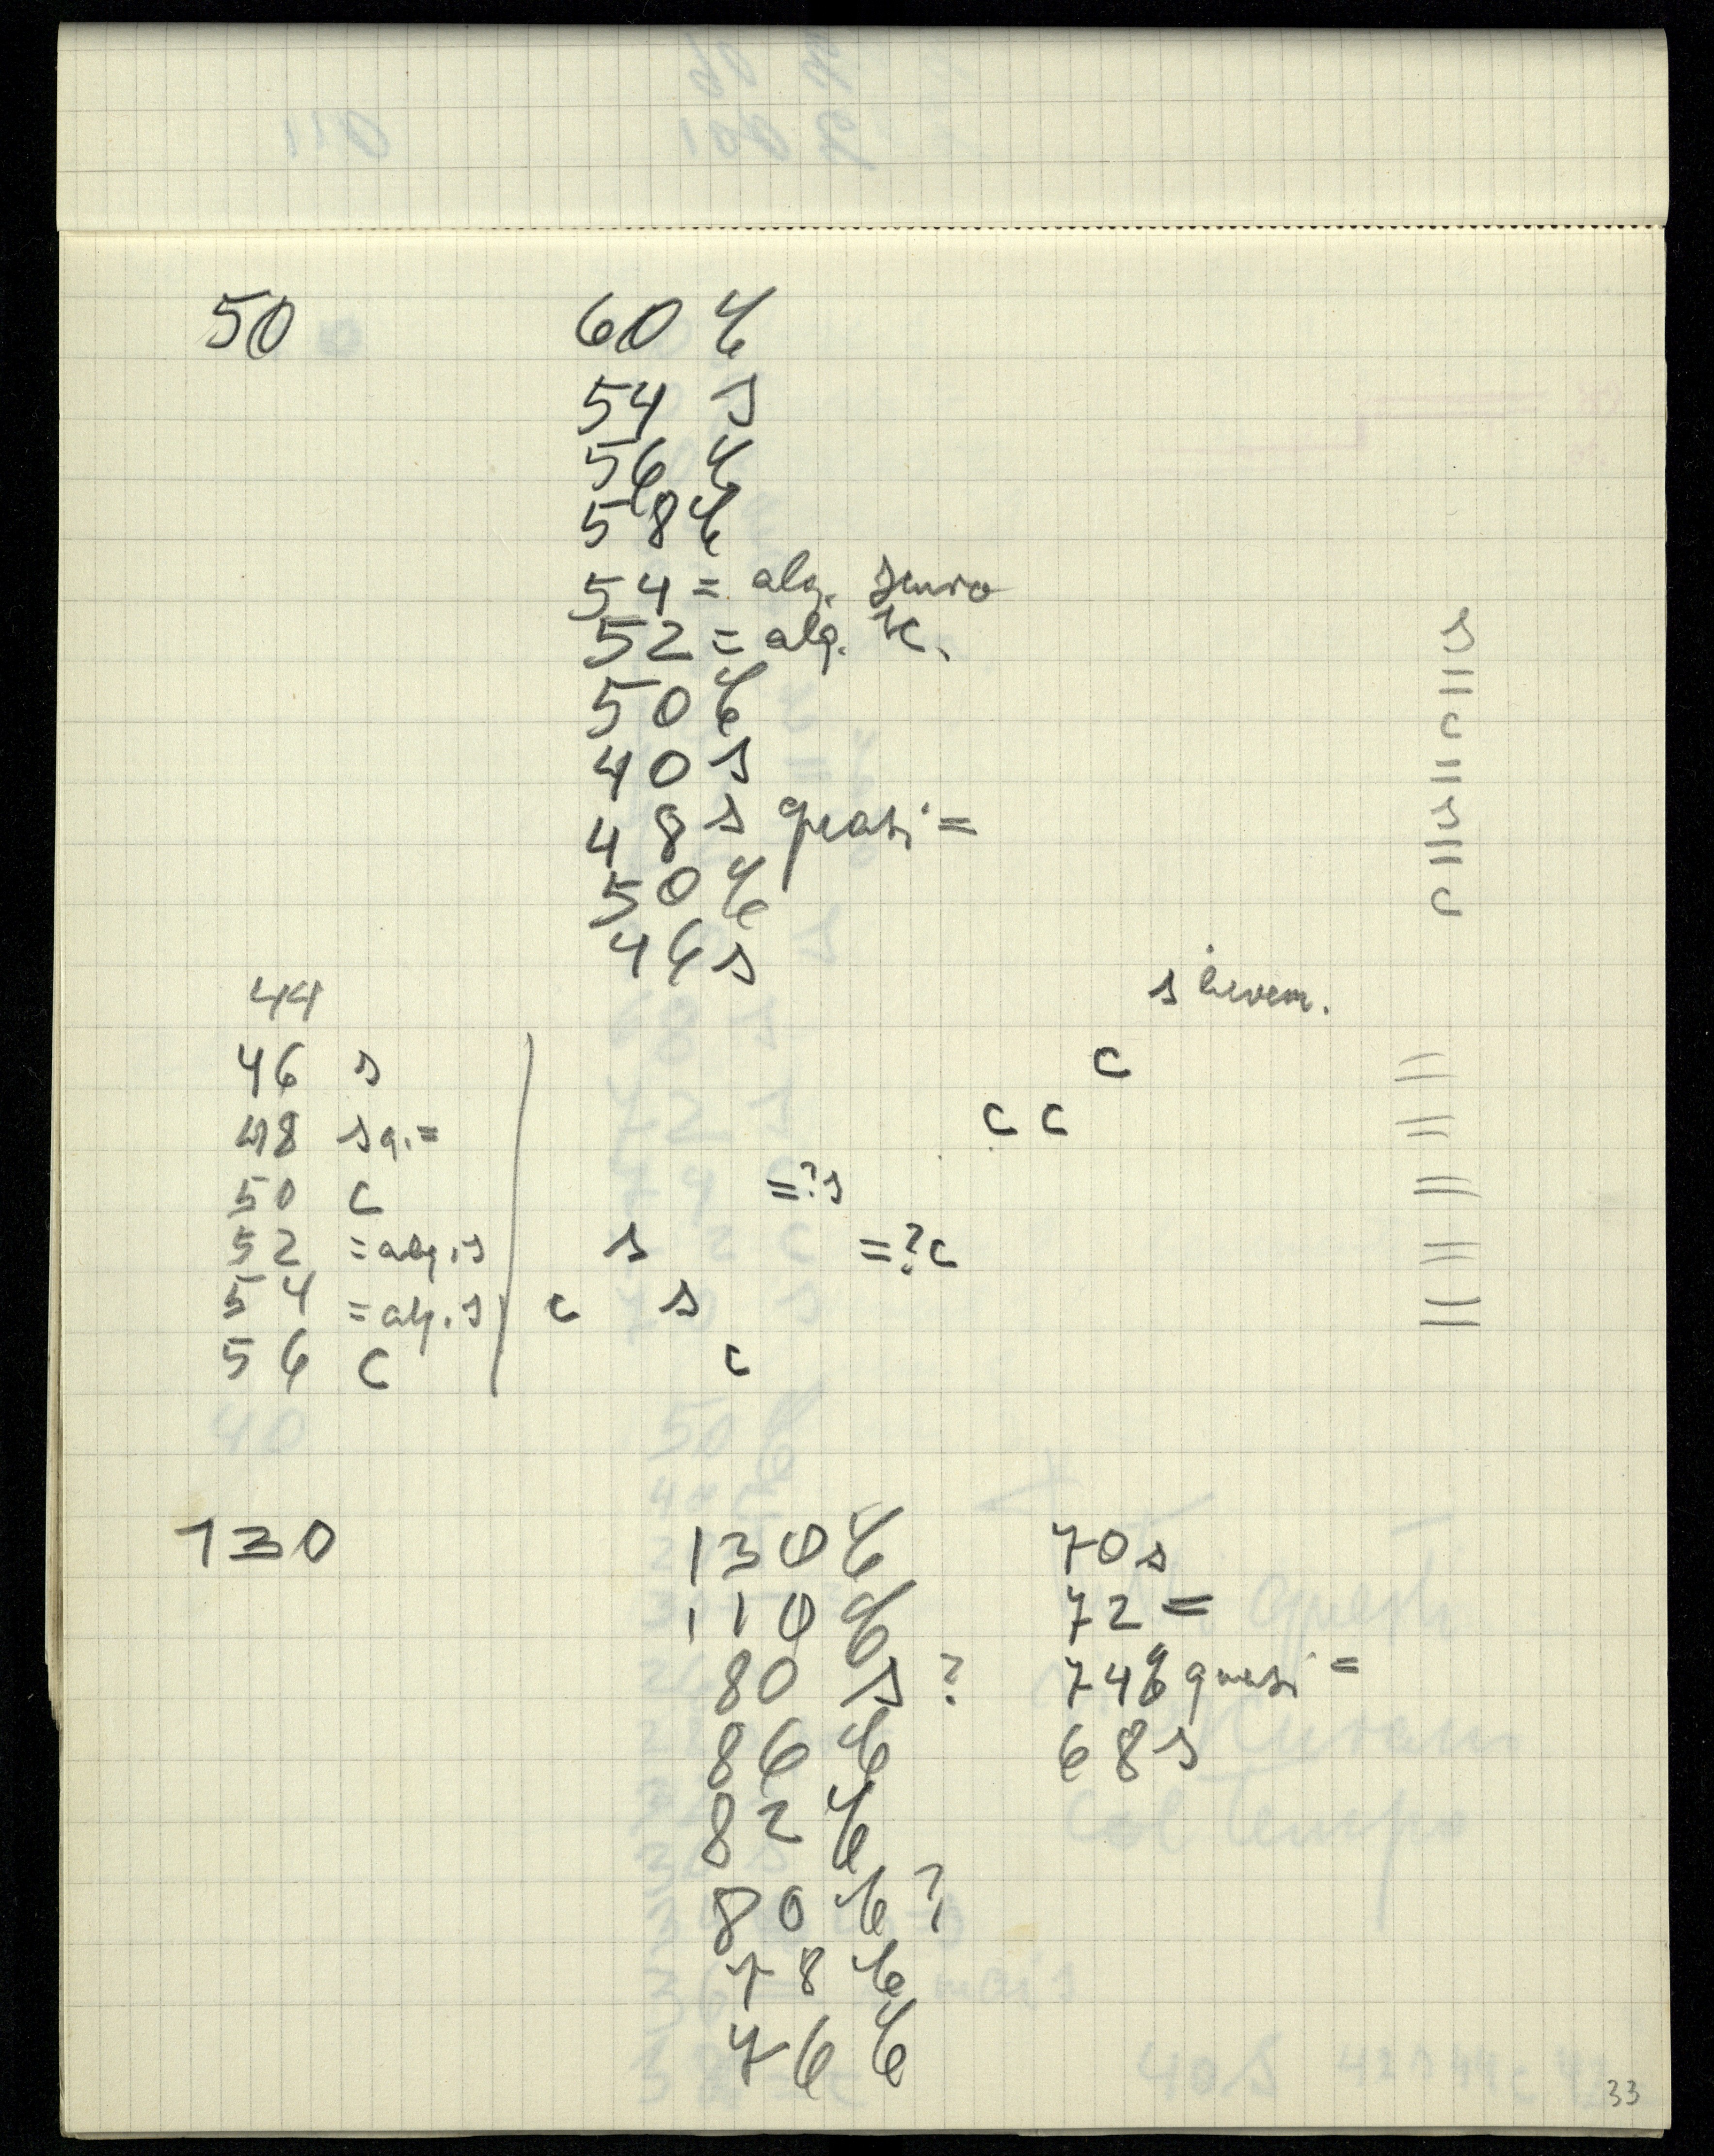 50 60 c
54 s
56 c
58 c
54 = alq. scuro
52 = alq. sc.
50 c
40 s
48 s quasi =
50 c
46 s
s
=
c
=
s
=
=
c
44
s lievem.
46 s c =
48 s q. = c c =
50 c = ? s =
52 = alq. s s = ? c =
54 = alq. s c s =
56 c c
130 130 c 70 s
110 c 72 =
80 s ? 74 c quasi =
86 c 68 s
82 c
80 c ?
78 c
76 c
33